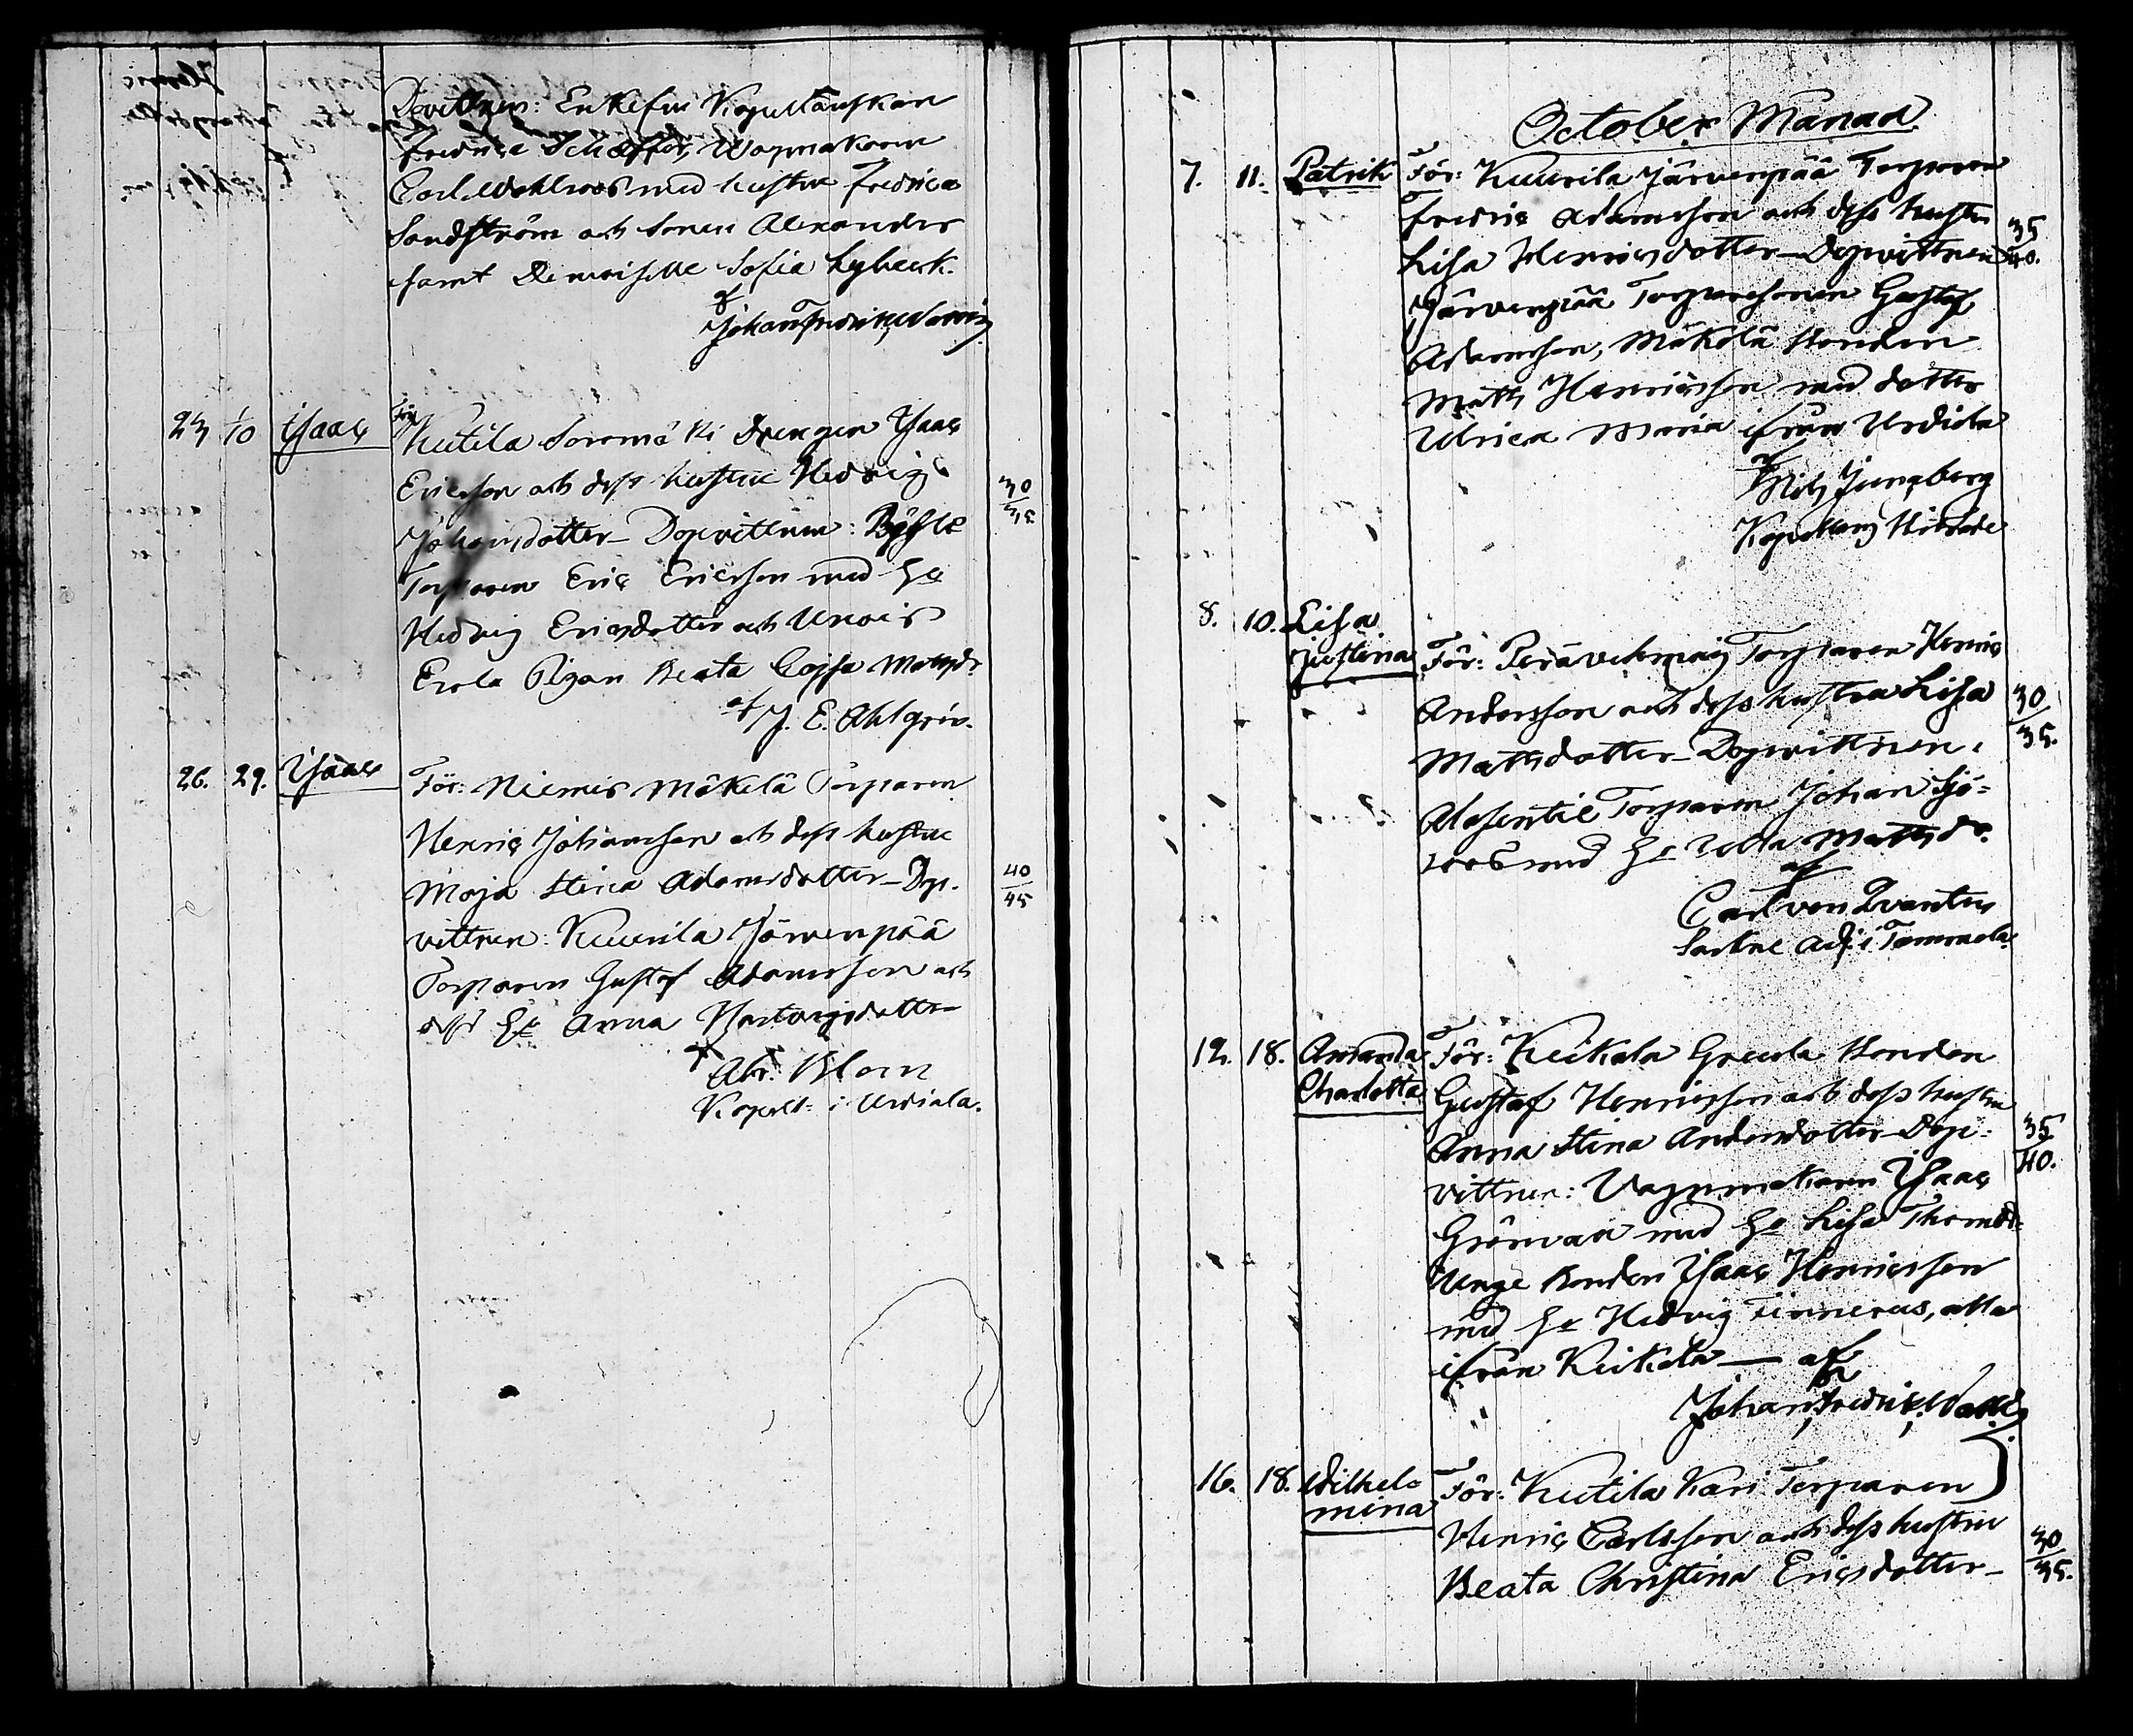 Dopvittnen: Enkefru Kapellanskan
Fredrica Schæffer, Wagnakaren
Carl Wahlroos med hustru Fredrica
Sandström och Sonen Alexander
samt Demoiselle Sofia Lybeck.
af
Johan Fredrik
23 1/10 Isaac För Kutila Soromäki Drengen Isaac
Ericsson och dess hustru Hedvig
30/35
Johansdotter – Dopvittnen:
Torparen Eric Ericsson med H:u
Hedvig Ericsdotter och
Erola Pigan Beata Cajsa Mattsdr
af J. E. Ahlgren.
26. 29. Isaac För: Niemis Mäkelä Torparen
Henric Johansson och dess hustru
Maja Stina Adamsdotter – Dop-
40/45
vittnen: Kuurila Järvenpää
Torparen Gustaf Adamsson och
dess H:u Anna Hartvigsdotter
af
Abr. Blom
Kapell: i Urdiala.
October Månad
7. 11. Patrik För: Kuurila Järvenpää Torparen
Fredric Adamsson och dess hustru
35/40.
Lisa Henricsdotter – Dopvittnen
Järvenpää Torparesonen Gustaf
Adamsson, Mäkelä Bonden
Matts Henricsson med dotter
Ulrica Maria ifrån Urdiala
af
Ljungberg
8. 10. Lisa
Justina För: Torparen Henric
Andersson och dess hustru Lisa
30/35.
Mattsdotter – Dopvittnen:
Torparen Johan Sjö-
roos med H:u Ulla Mattsdr.
af
Carl von Qvanten
Sockne Adj: i Tammela.
12. 18. Amanda
Charlotta
För: Keikala Greula Bonden
Gustaf Henricsson och dess hustru
Anna Stina Andersdotter – Dop-
35/40.
vittnen: Vagnmakaren Isaac
Grönvall med H:u Lisa Thomsd:
Unge Bonden Isaac Henricsson
med H:u Hedvig Tinnerus, alla
ifrån Keikala — af
Johan Fredrik
16. 18. Wilhel-
mina
För: Kutila Kari Torparen
Henric Carlsson och dess hustru
Beata Christina Ericsdotter –
30/35.